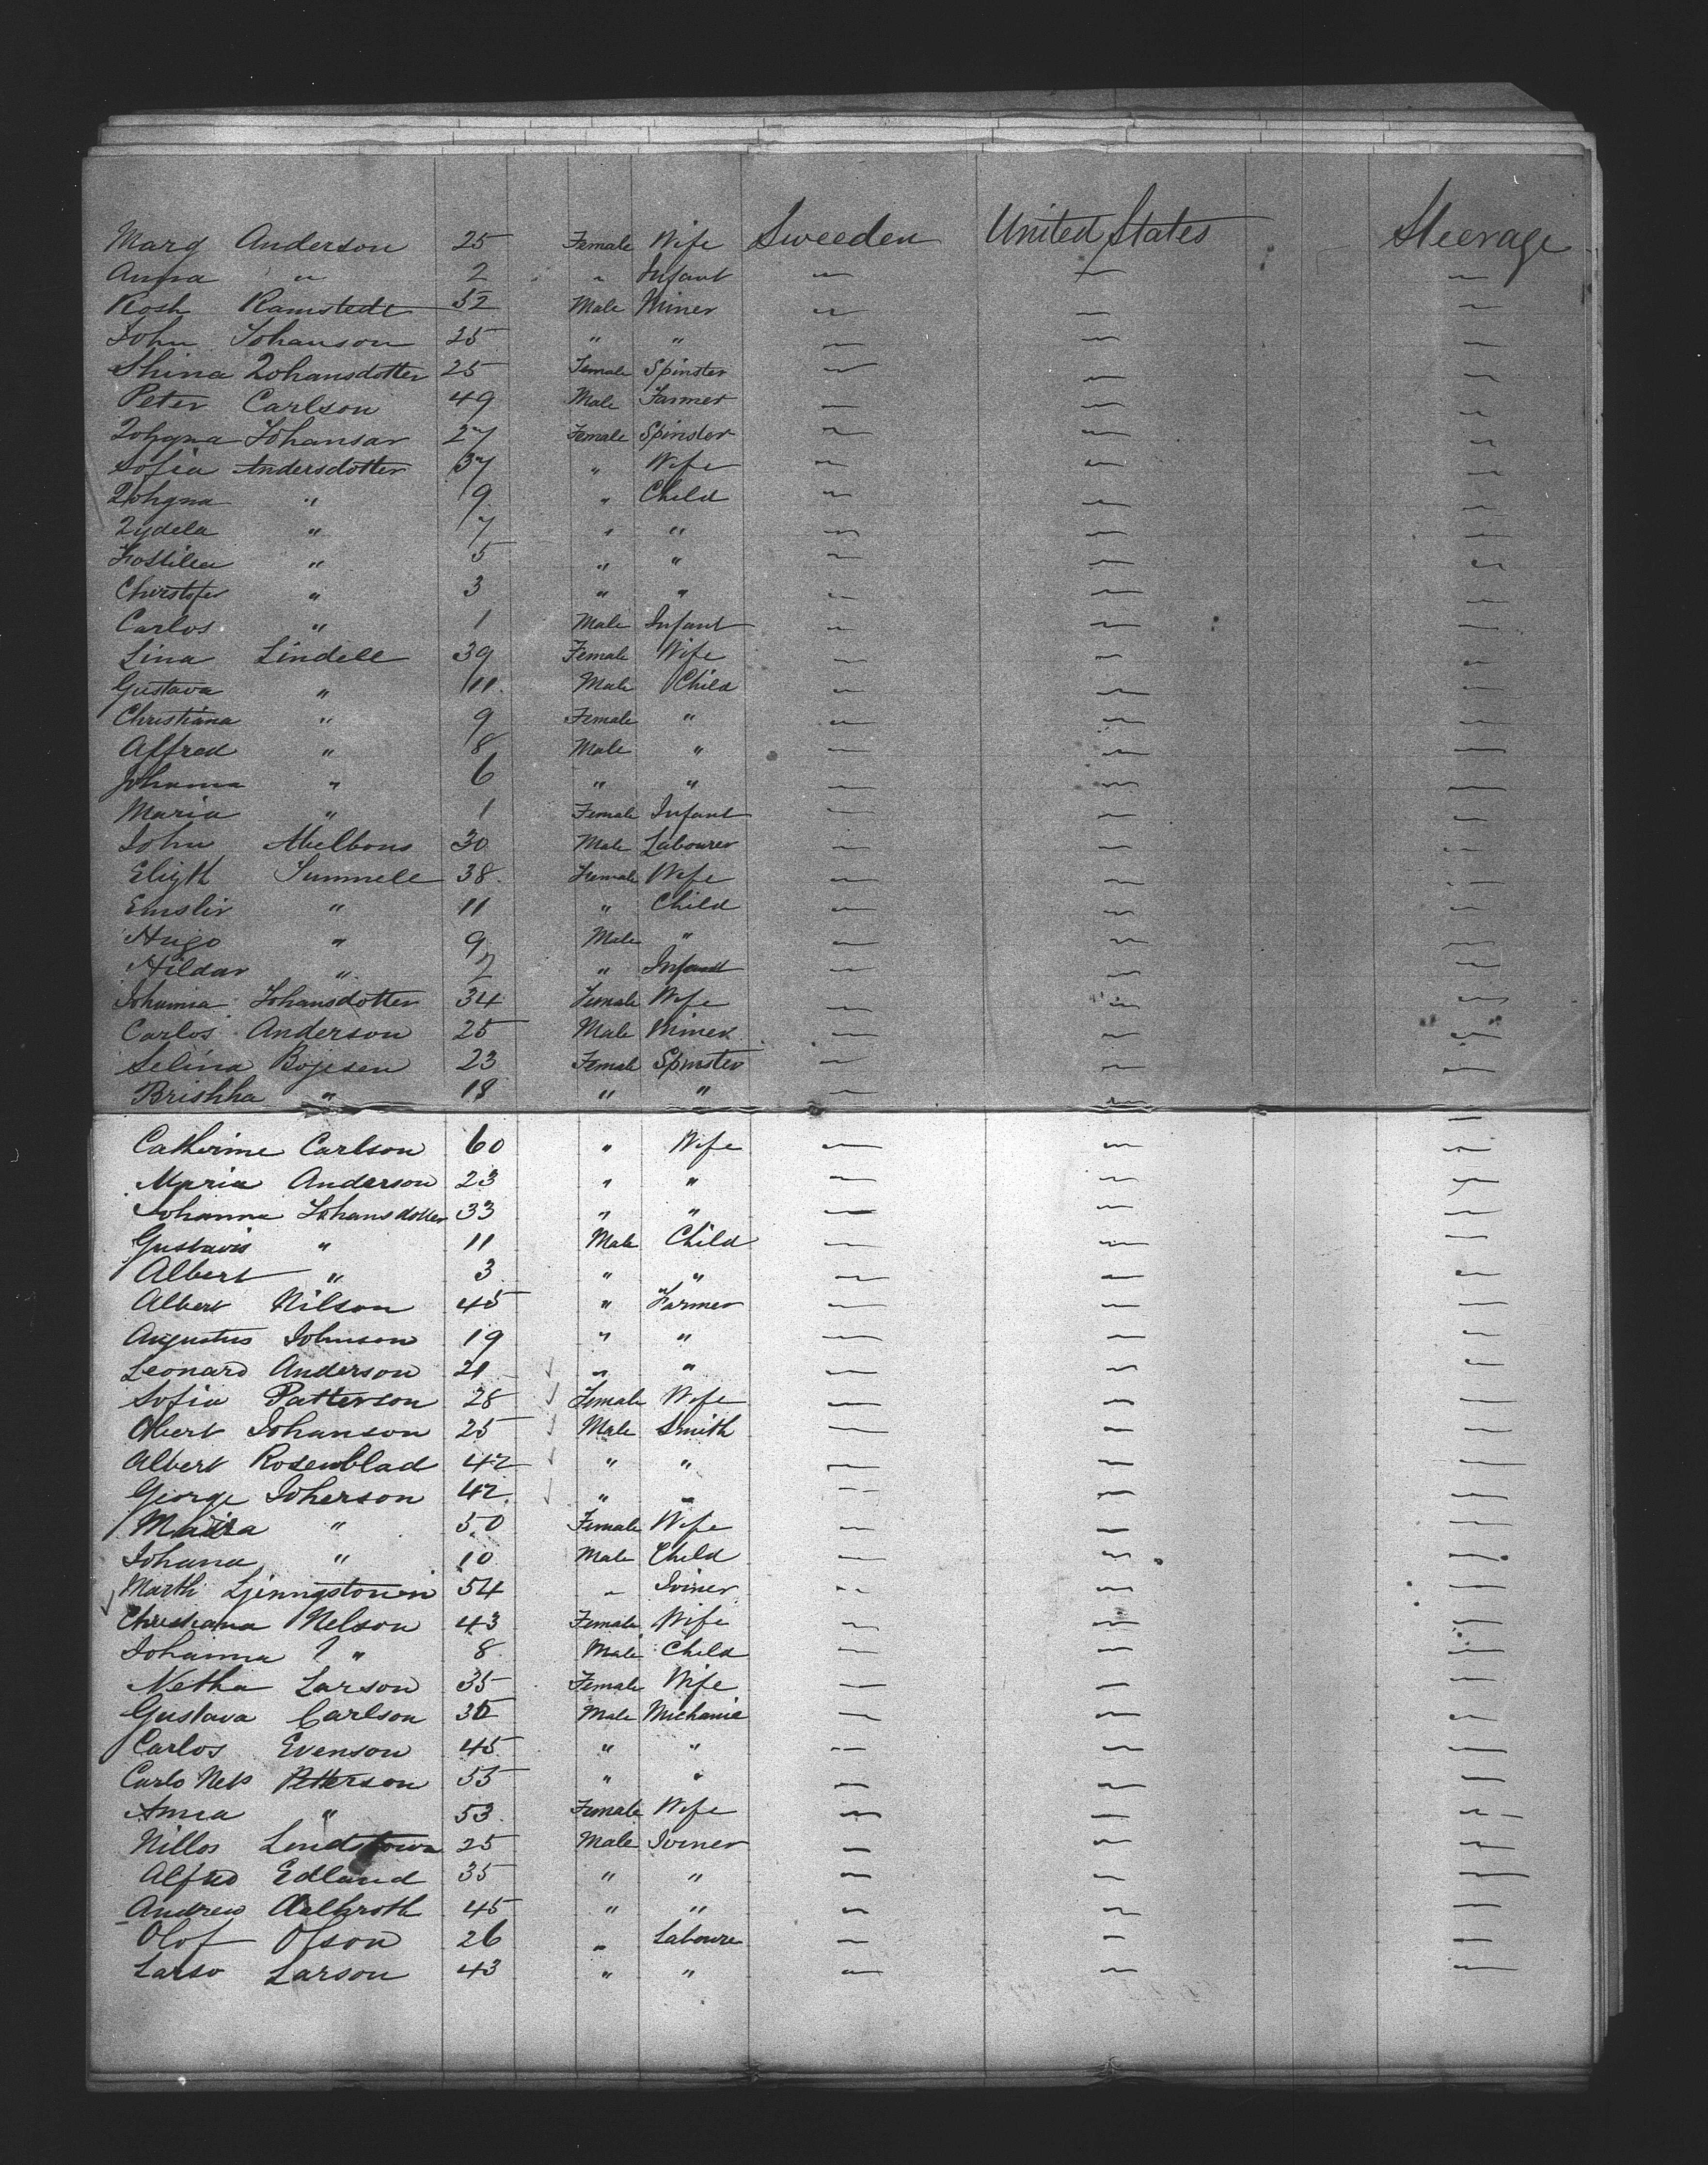 Mary Anderson 25 Female Wife Sweeden United States Steerage
Anna " 2 " Infant — — —
Kosh Ramstedt 52 Male Miner — — —
John Johanson 25 " " — — —
Shina Johansdotter 25 Female Spinster — — —
Peter Carlson 49 Male Farmer — — —
Johana Johansar 27 Female Spinster — — —
Sofia Andersdotter 37 " Wife — — —
Johana " 9 " Child — — —
Lydela " 7 " " — — —
" 5 " " — — —
Christofer " 3 " " — — —
Carlos " 1 Male Infant — — —
Lina Lindell 39 Female Wife — — —
Gustava " 11 Male Child — — —
Christiana " 9 Female " — — —
Alfred " 8 Male " — — —
Johanna " 6 " " — — —
Maria " 1 Female Infant — — —
John 30 Male Labourer — — —
Summell 38 Female Wife — — —
" 11 " Child — — —
Hugo " 9 Male " — — —
Hildar " 2 " Infant — — —
Johanna Johansdotter 34 Female Wife — — —
Carlos Anderson 25 Male Miner — — —
Selina Bojesen 23 Female Spinster — — —
Brishha " 18 " " — — —
Catherine Carlson 60 " Wife — — —
Maria Anderson 23 " " — — —
Johanna Johansdotter 33 " " — — —
Gustavis " 11 Male Child — — —
Albert " 3 " " — — —
Albert Nilson 45 " Farmer — — —
Augustus Johnson 19 " " — — —
Leonard Anderson 21 " " — — —
Sofia Patterson 28 Female Wife — — —
Albert Johanson 25 Male Smith — — —
Albert Rosenblad 42 " " — — —
George Joherson 42 " " — — —
Maria " 50 Female Wife — — —
Johana " 10 Male Child — — —
Marth 54 " Joiner — — —
Christiana Nelson 43 Female Wife — — —
Johanna " 8 Male Child — — —
Netha Larson 35 Female Wife — — —
Gustava Carlson 35 Male Michanic — — —
Carlos Evenson 45 " " — — —
Carlo Nels Petterson 55 " " — — —
Anna " 53 Female Wife — — —
Nillos 25 Male Joiner — — —
Alfred Edlund 35 " " — — —
Andrew Aelbroth 45 " " — — —
Olof Olson 26 " Laboure — — —
Larso Larson 43 " " — — —